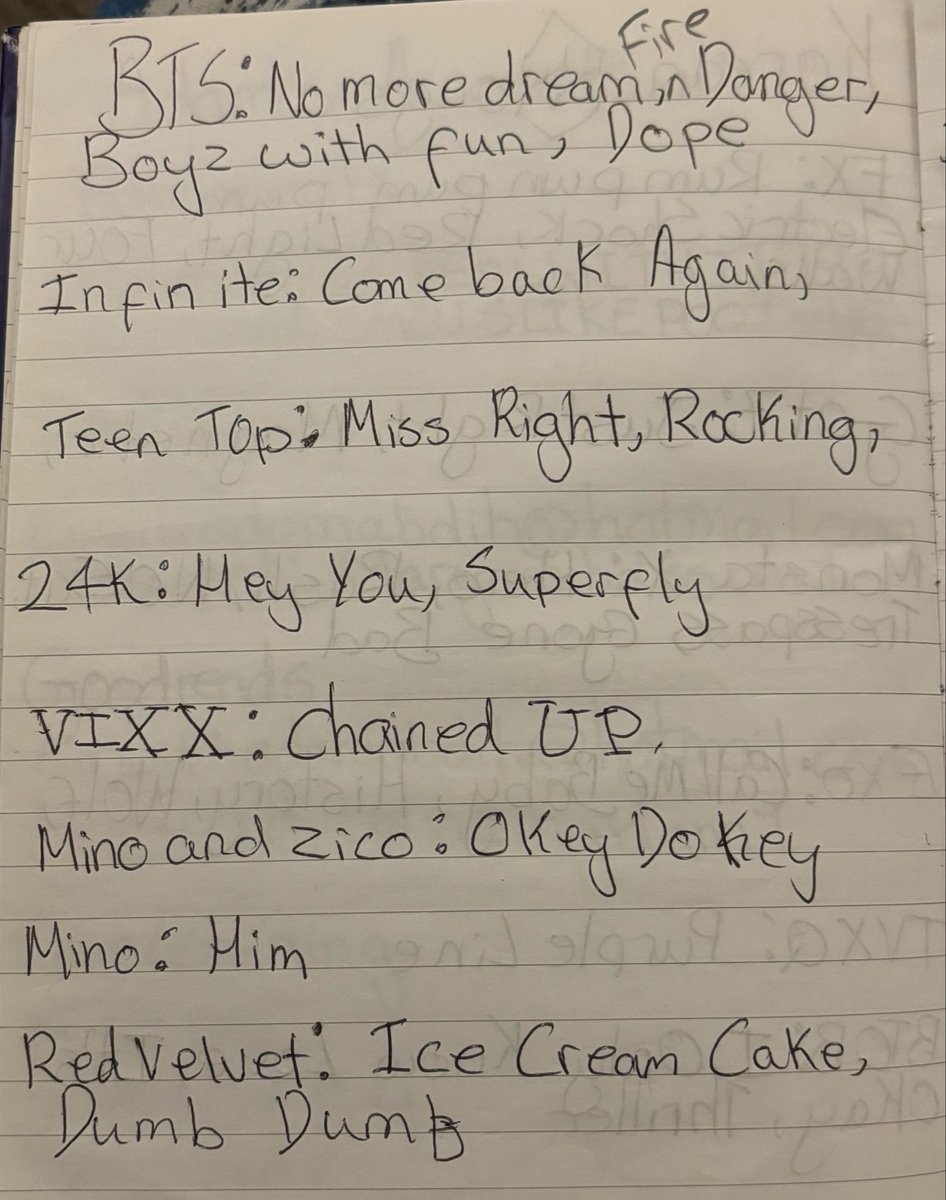 Fire
BTS: No more dream, ^ Danger,
Boyz with fun, Dope
Infinite: Come back Again,
Teen Top: Miss Right, Rocking,
24K: Hey You, Superfly
VIXX: Chained UP,
Mino and Zico: Okey Dokey
Mino: Him
Red Velvet: Ice Cream Cake,
Dumb Dumb